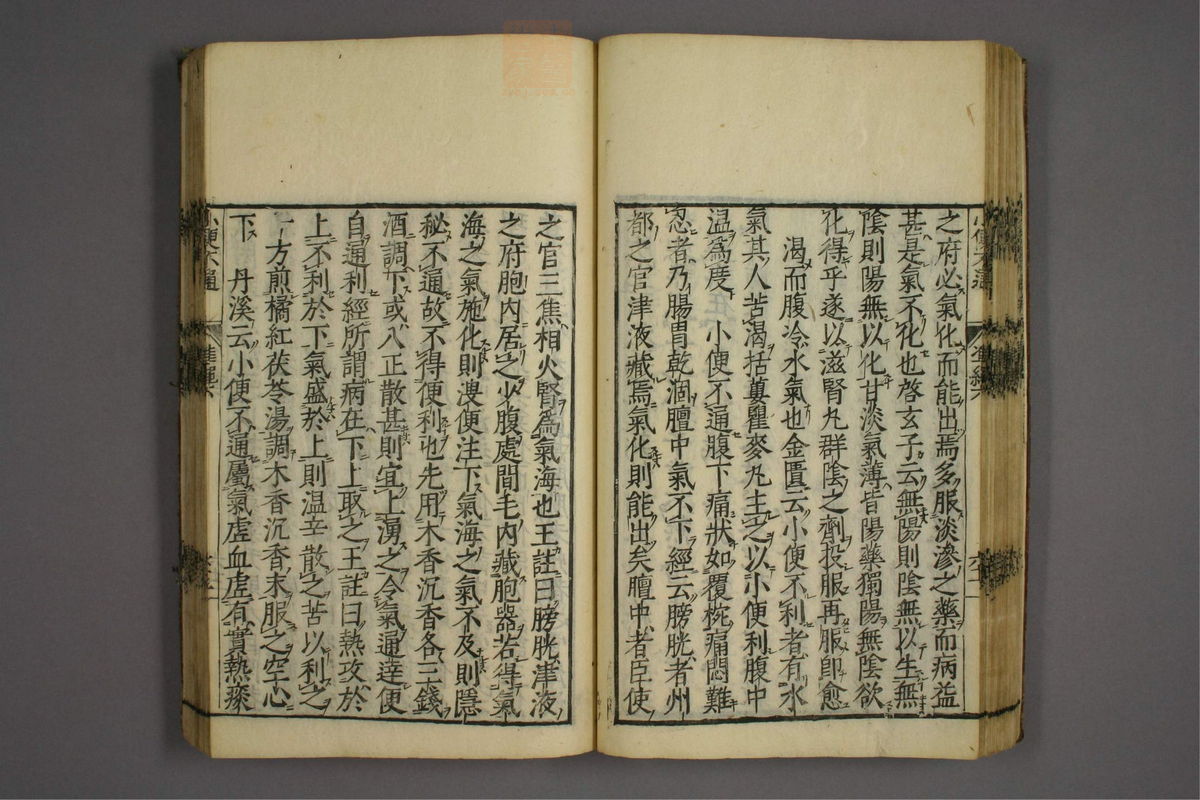 之府必氣化而能出焉多服淡滲之藥而病益
甚是氣不化也啓玄子云無陽則陰無以生無
陰則陽無以化甘淡氣薄皆陽藥獨陽無陰欲
化得乎遂以滋腎丸群陰之劑投服再服即愈
渴而腹冷水氣也金匱云小便不利者有水
氣其人苦渴括蔞瞿麥丸主之以小便利腹中
温爲度 小便不通腹下痛狀如覆椀痛悶難
忍者乃腸胃乾涸膻中氣不下經云膀胱者州
都之官津液藏焉氣化則能出矣膻中者臣使
之官三焦相火腎爲氣海也王註曰膀胱津液
之府胞內居之少腹處間毛內藏胞器若得氣
海之氣施化則溲便注下氣海之氣不及則隱
秘不通故不得便利也先用木香沉香各三錢
酒調下或八正散甚則宜上湧之令氣通達便
自通利經所謂病在下上取之王註曰熱攻於
上不利於下氣盛於上則温辛散之苦以利之
一方煎橘紅茯苓湯調木香沉香末服之空心
下 丹溪云小便不通屬氣虛血虛有實熱痰
小便不通